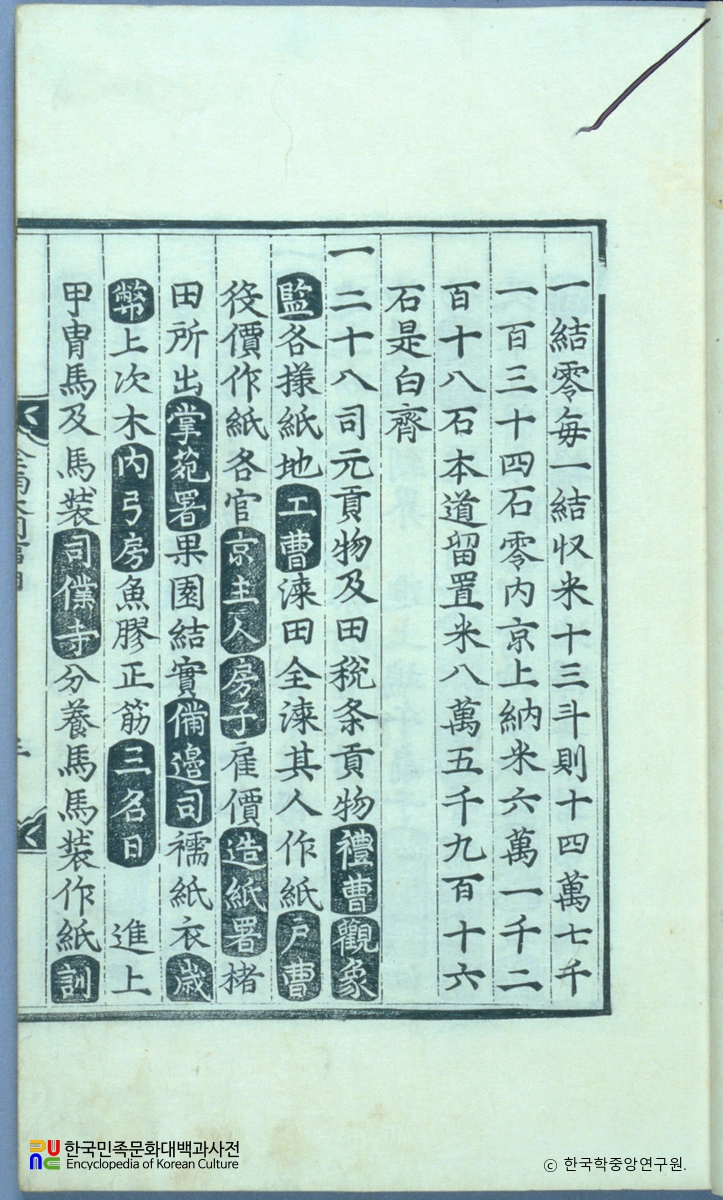 一結零每一結収米十三斗則十四萬七千
一百三十四石零內京上納米六萬一千二
百十八石本道留置米八萬五千九百十六
石是白齊
一二十八司元貢物及田稅条貢物禮曹觀象
監各様紙地工曹漆田全漆其人作紙戶曹
役價作紙各官京主人房子雇價造紙署楮
田所出掌苑署果園結實備邊司襦紙衣歲
幣上次木內弓房魚膠正筋三名日 進上
甲冑馬及馬裝司僕寺分養馬馬裝作紙訓
한국민족문화대백과사전
Encyclopedia of Korean Culture
ⓒ 한국학중앙연구원.